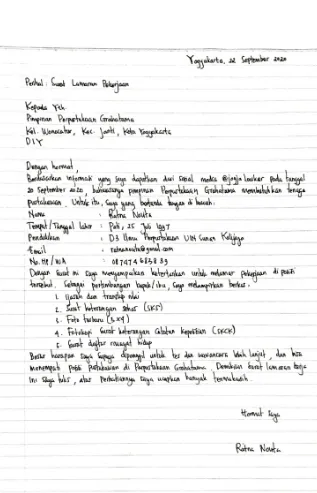 Yogyakarta, 22 September 2020
Perihal : Surat Lamaran Pekerjaan
Kepada Yth.
Pimpinan Perpustakaan Grahatama
Kel. Wonocatur, Kec. Janti, Kota Yogyakarta
DIY
Dengan hormat,
Berdasarkan informasi yang saya dapatkan dari sosial media @jogja.loker pada tanggal
20 September 2020, bahwasanya pimpinan Perpustakaan Grahatama membutuhkan tenaga
pustakawan. Untuk itu, saya yang bertanda tangan di bawah.
Nama : Ratna Novita
Tempat / Tanggal lahir : Pati, 25 Juli 1997
Pendidikan : D3 Ilmu Perpustakaan UIN Sunan Kalijaga
Email : @gmail.com
No. HP / WA :
Dengan surat ini saya menyampaikan ketertarikan untuk melamar pekerjaan di posisi
tersebut. Sebagai pertimbangan bapak/ibu saya melampirkan berkas :
1. Ijazah dan transkip nilai
2. Surat keterangan sehat (SKS)
3. Foto terbaru (3x4)
4. Fotokopi Surat keterangan Catatan Kepolisian (SKCK)
5. Surat daftar riwayat hidup
Besar harapan saya supaya dipanggil untuk tes dan wawancara lebih lanjut, dan bisa
menempati posisi Pustakawan di Perpustakaan Grahatama. Demikian surat lamaran kerja
ini saya tulis, atas perhatiannya saya ucapkan banyak terimakasih.
Hormat saya
Ratna Novita